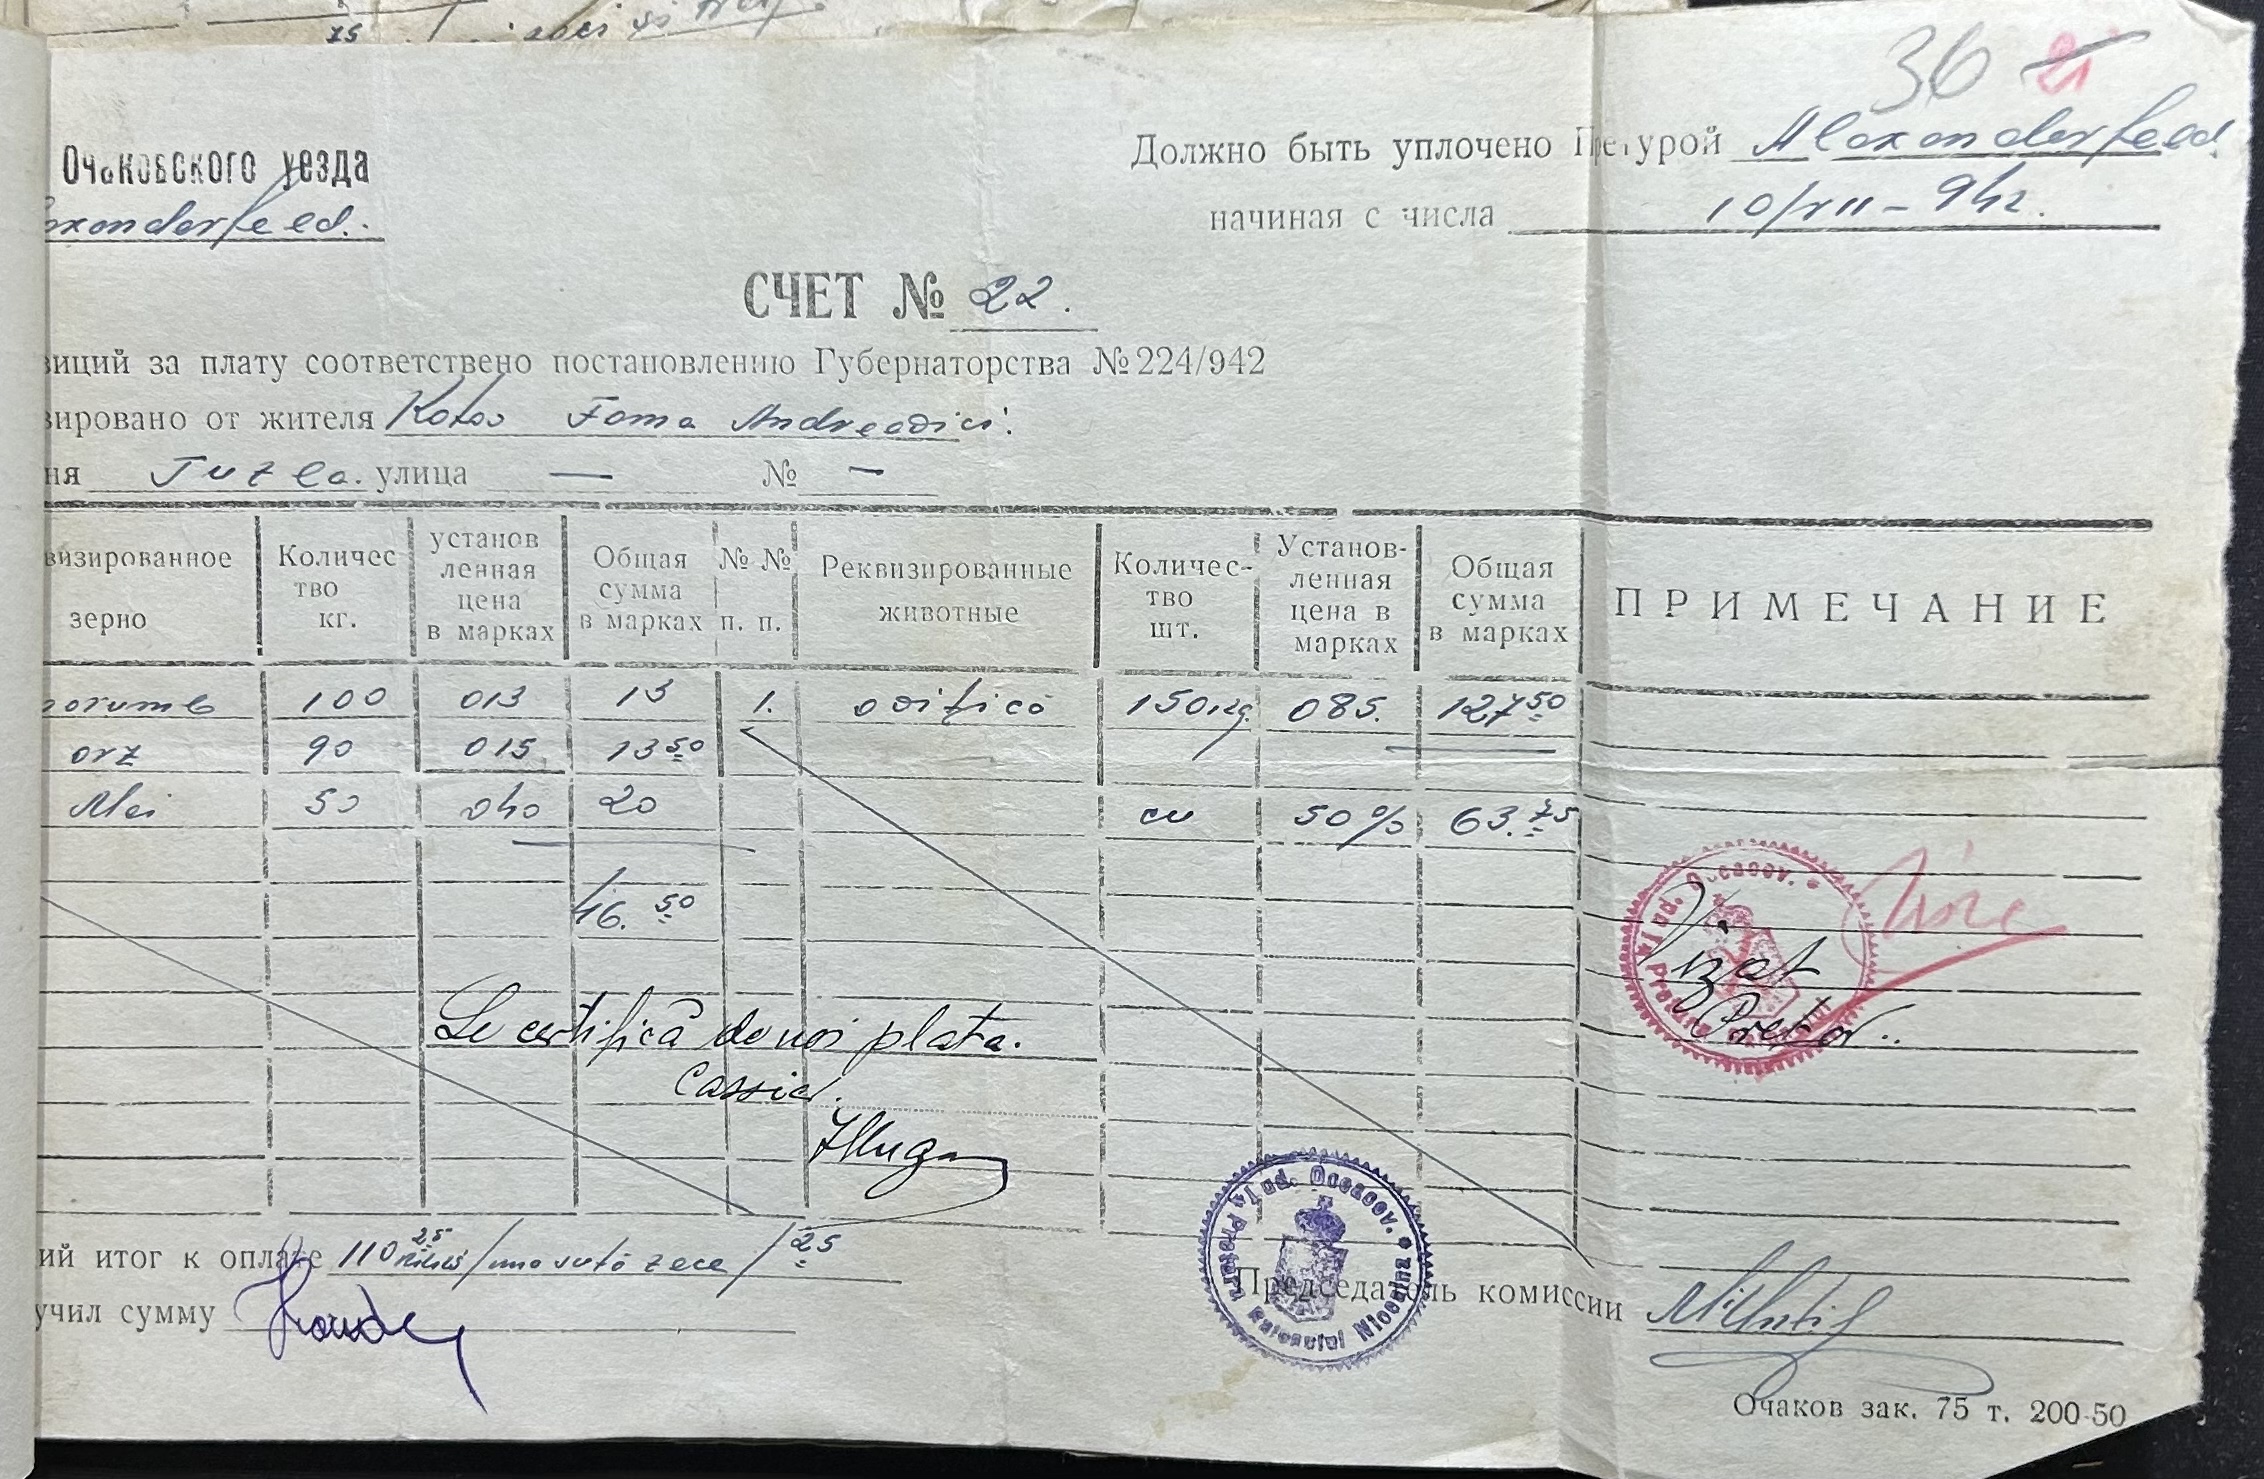 36 21
Очаковского уезда
Должно быть уплочено Претурой Alexanderfeld.
exanderfeld.
начиная с числа 10/VII – 942.
СЧЕТ № 22.
зиций за плату соответствено постановлению Губернаторства № 224/942
зировано от жителя Foma
ня Tuzla. улица — № —
визированное зерно
Количес тво кг.
установ ленная цена в марках
Общая сумма в марках
№ № п. п.
Реквизированные животные
Количес- тво шт.
Установ- ленная цена в марках
Общая сумма в марках
ПРИМЕЧАНИЕ
orumb 100 013 13 1. 150 kg. 085. 127 50
orz 90 015 13 50
Mei 50 040 20 cu 50% 63. 75
46. 50
Se certifică de noi plata.
Cassier.
Vizat
Pretor..
Pretura Jud. Oceacov.
Pretura Raionului Jud. Oceacov.
ий итог к оплате 110 25 /una sută zece/ 25
учил сумму
Председатель комиссии
Очаков зак. 75 т. 200-50